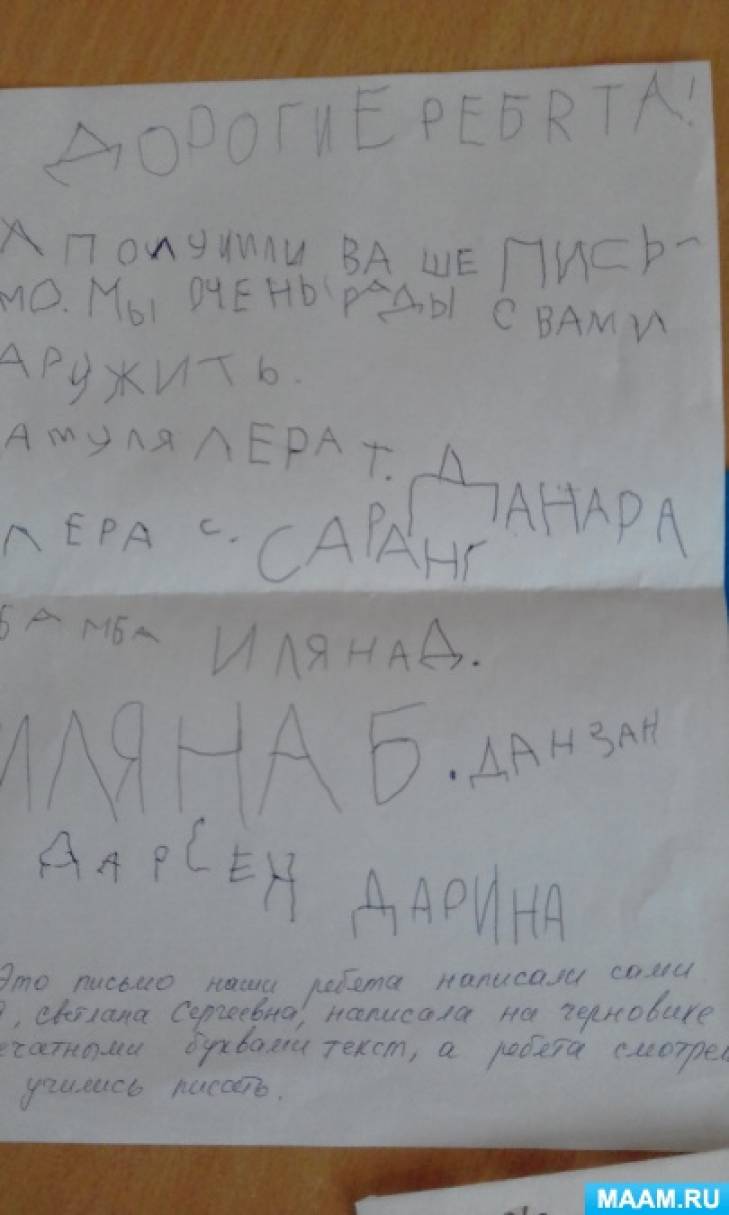 ДОРОГИЕ РЕБЯТА!
А ПОЛУЧИЛИ ВАШЕ ПИСЬ-
МО. МЫ ОЧЕНЬ РАДЫ С ВАМИ
ДРУЖИТЬ.
АМУЛЯ ЛЕРА Т.
ЛЕРА С. САРАНГ ДАНАРА
БАМБА ИЛЯНА Д.
ИЛЯНА Б. ДАНЗАН
ДАРСЕН ДАРИНА
Это письмо наши ребята написали сами
Я, Светлана Сергеевна, написала на черновике
ечатными буквами текст, а ребята смотрел
учились писать.
MAAM.RU